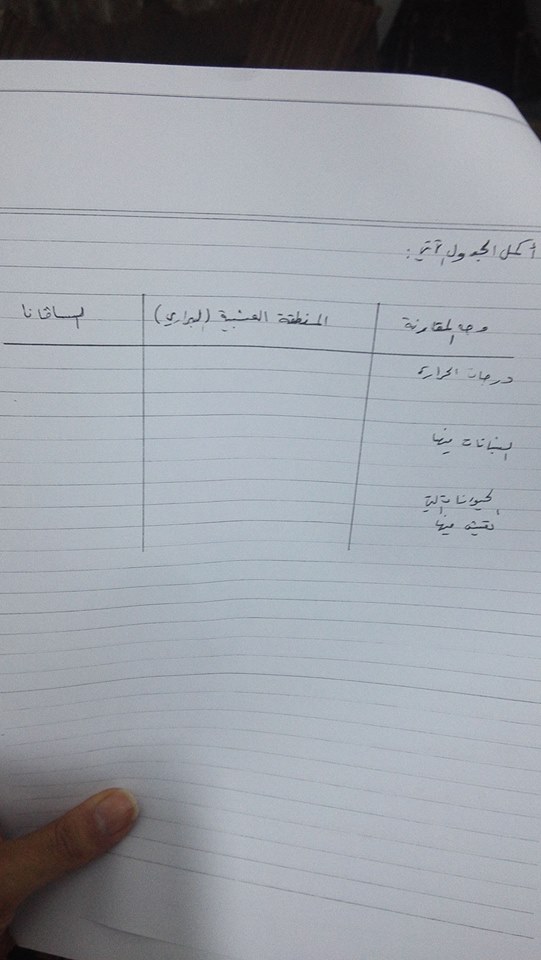 أكمل الجدول الآتي :
وجه المقارنة المنطقة العشبية (البراري) السافانا
درجات الحرارة
النباتات فيها
الحيوانات التي
تعيش فيها